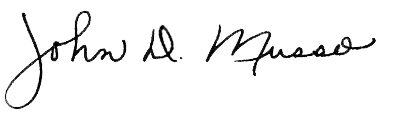 John D. Musso